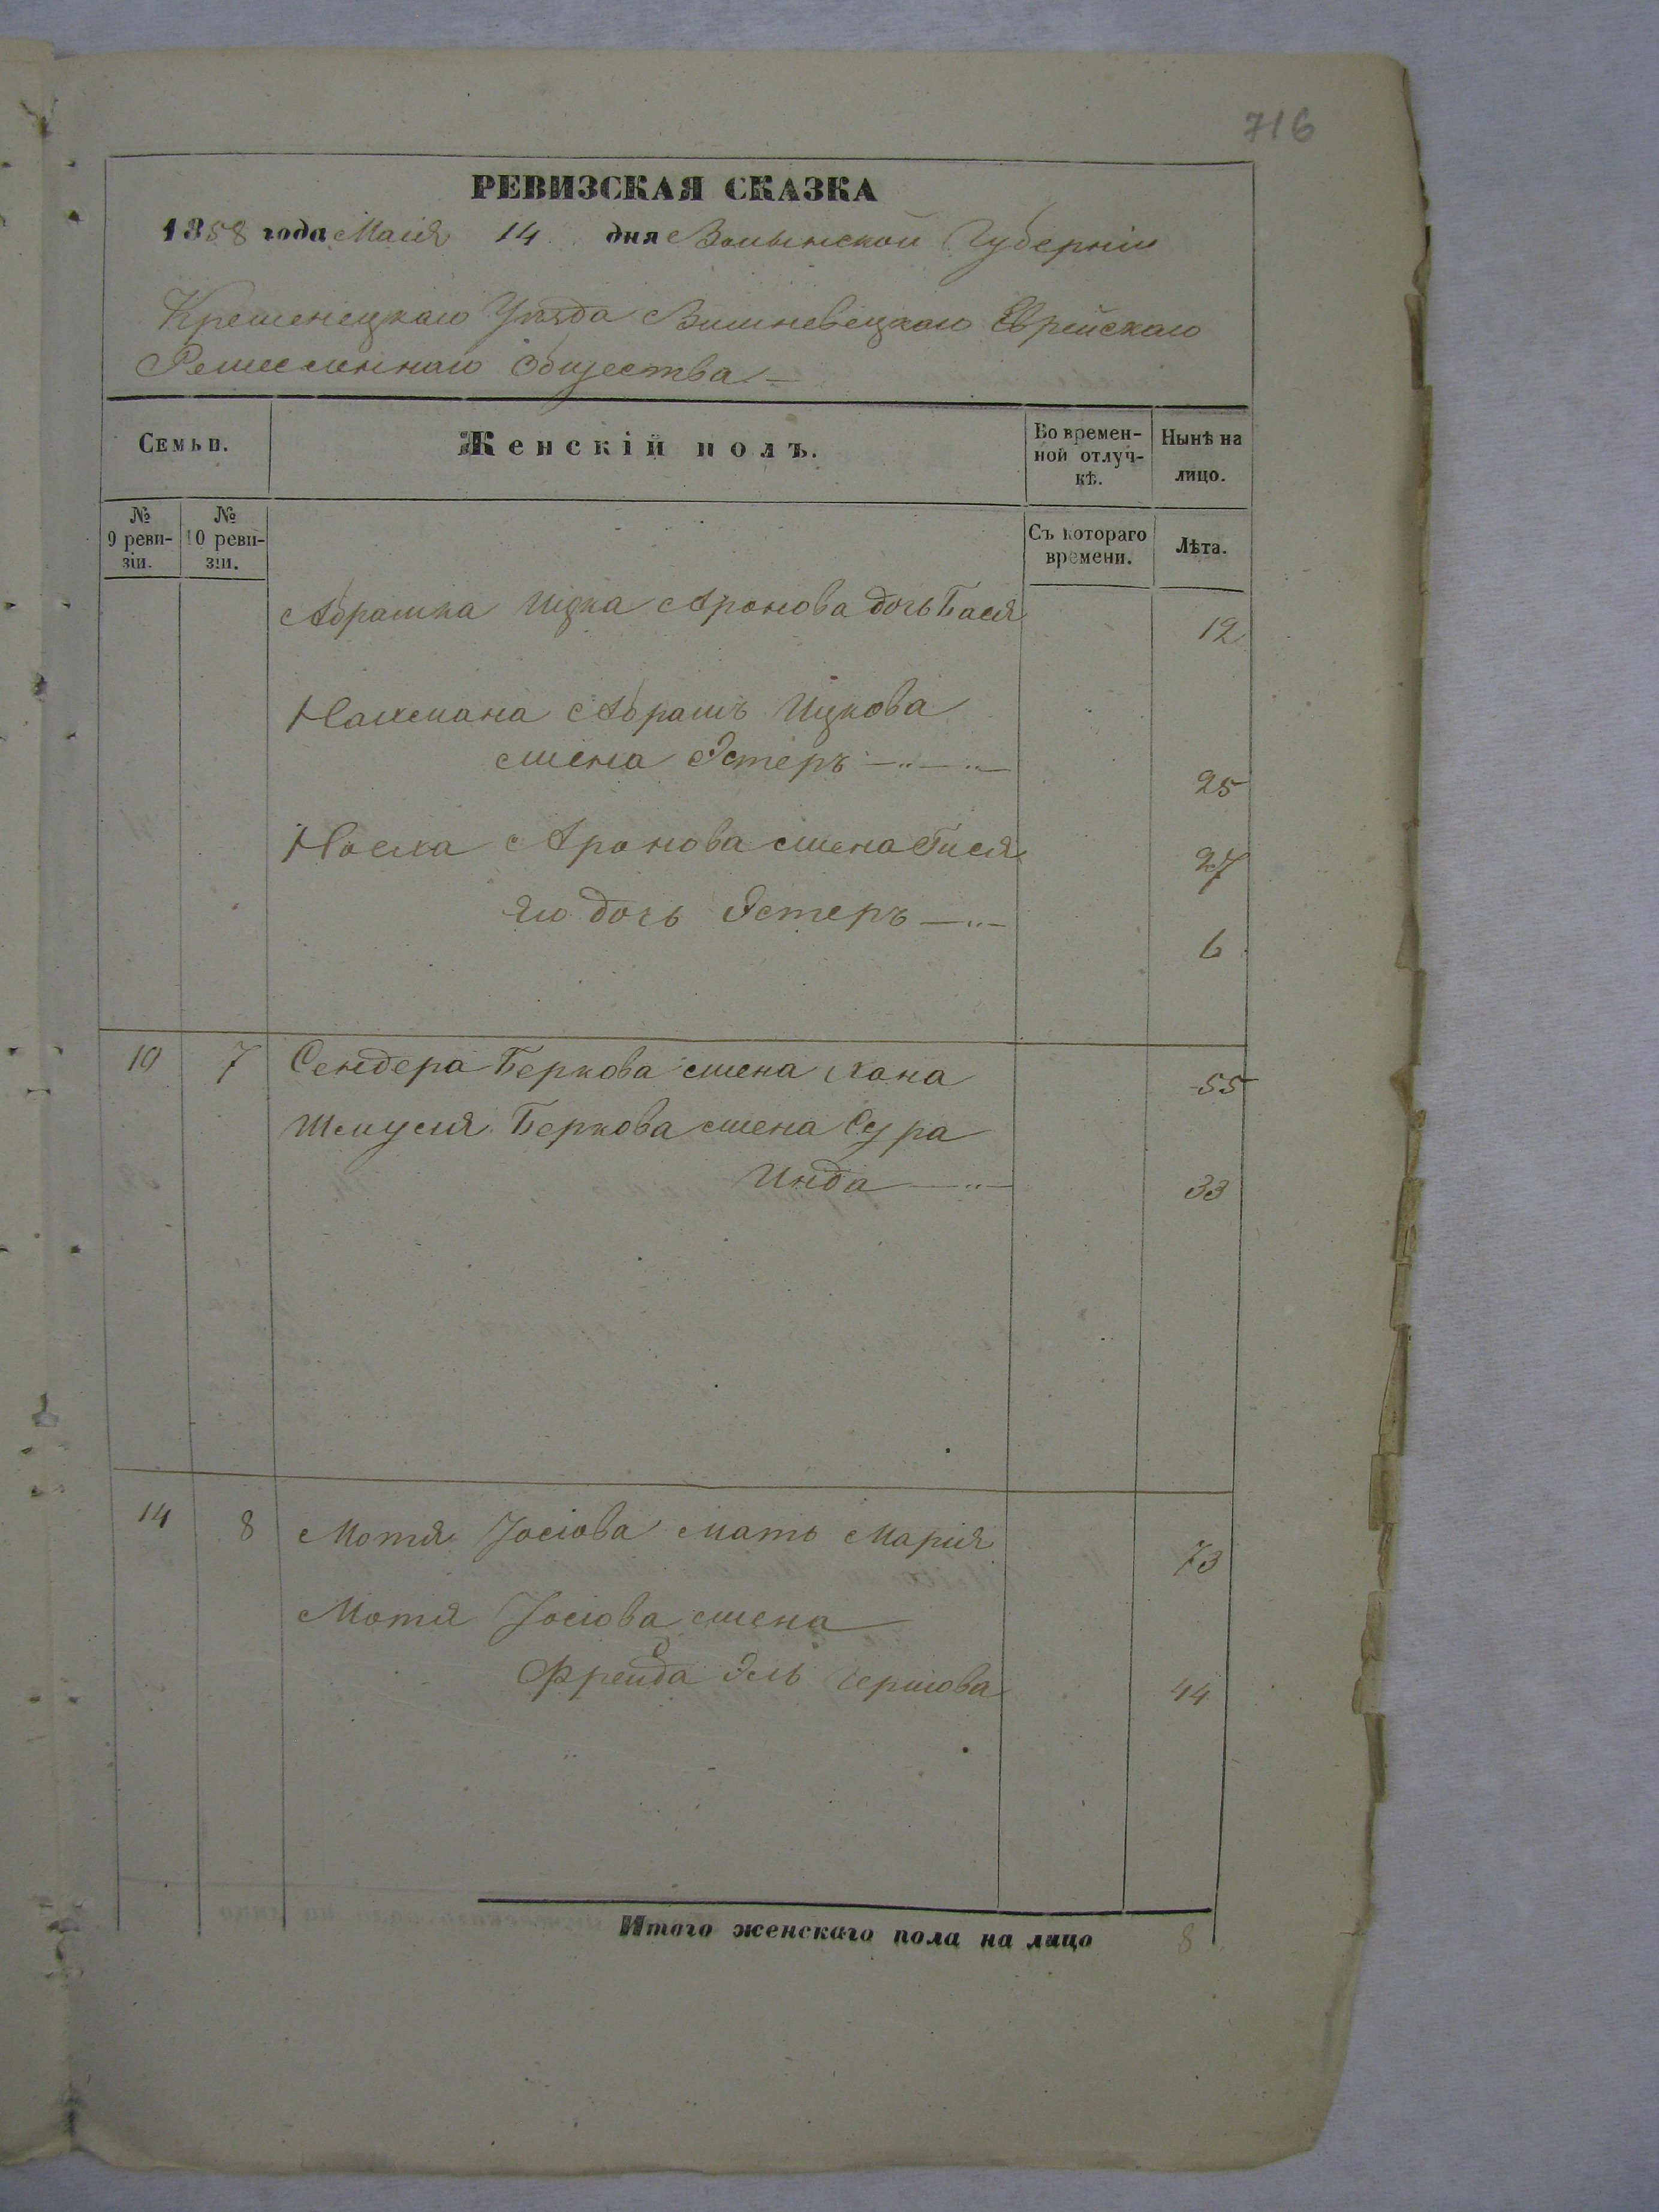 716
РЕВИЗСКАЯ СКАЗКА
1858 года Маія 14 дня Волынской Губерніи
Кременецкаго Уѣзда Вишневецкаго Еврейскаго
Ремесленнаго Общества —
Семьи.
Женскій полъ.
Во времен-
ной отлуч-
кѣ.
Нынѣ на
лицо.
№
9 реви-
зіи.
№
10 реви-
зіи.
Съ котораго
времени.
Лѣта.
Абрамка Ицка Аронова дочь Бася 12
Нахмана Абрамъ Ицкова
жена Эстеръ — „ — „ — 25
Иосха Аронова жена Гися 27
Его дочь Эстеръ — „ — 6
10 7 Сендера Беркова жена Хана 55
Шмуля Беркова жена Сура
Инда — „ — 33
14 8 Мотя Іосіова мать Марія 73
Мотя Іосіова жена
Фрейда Эль Гершова 44
Итого женскаго пола на лицо 8